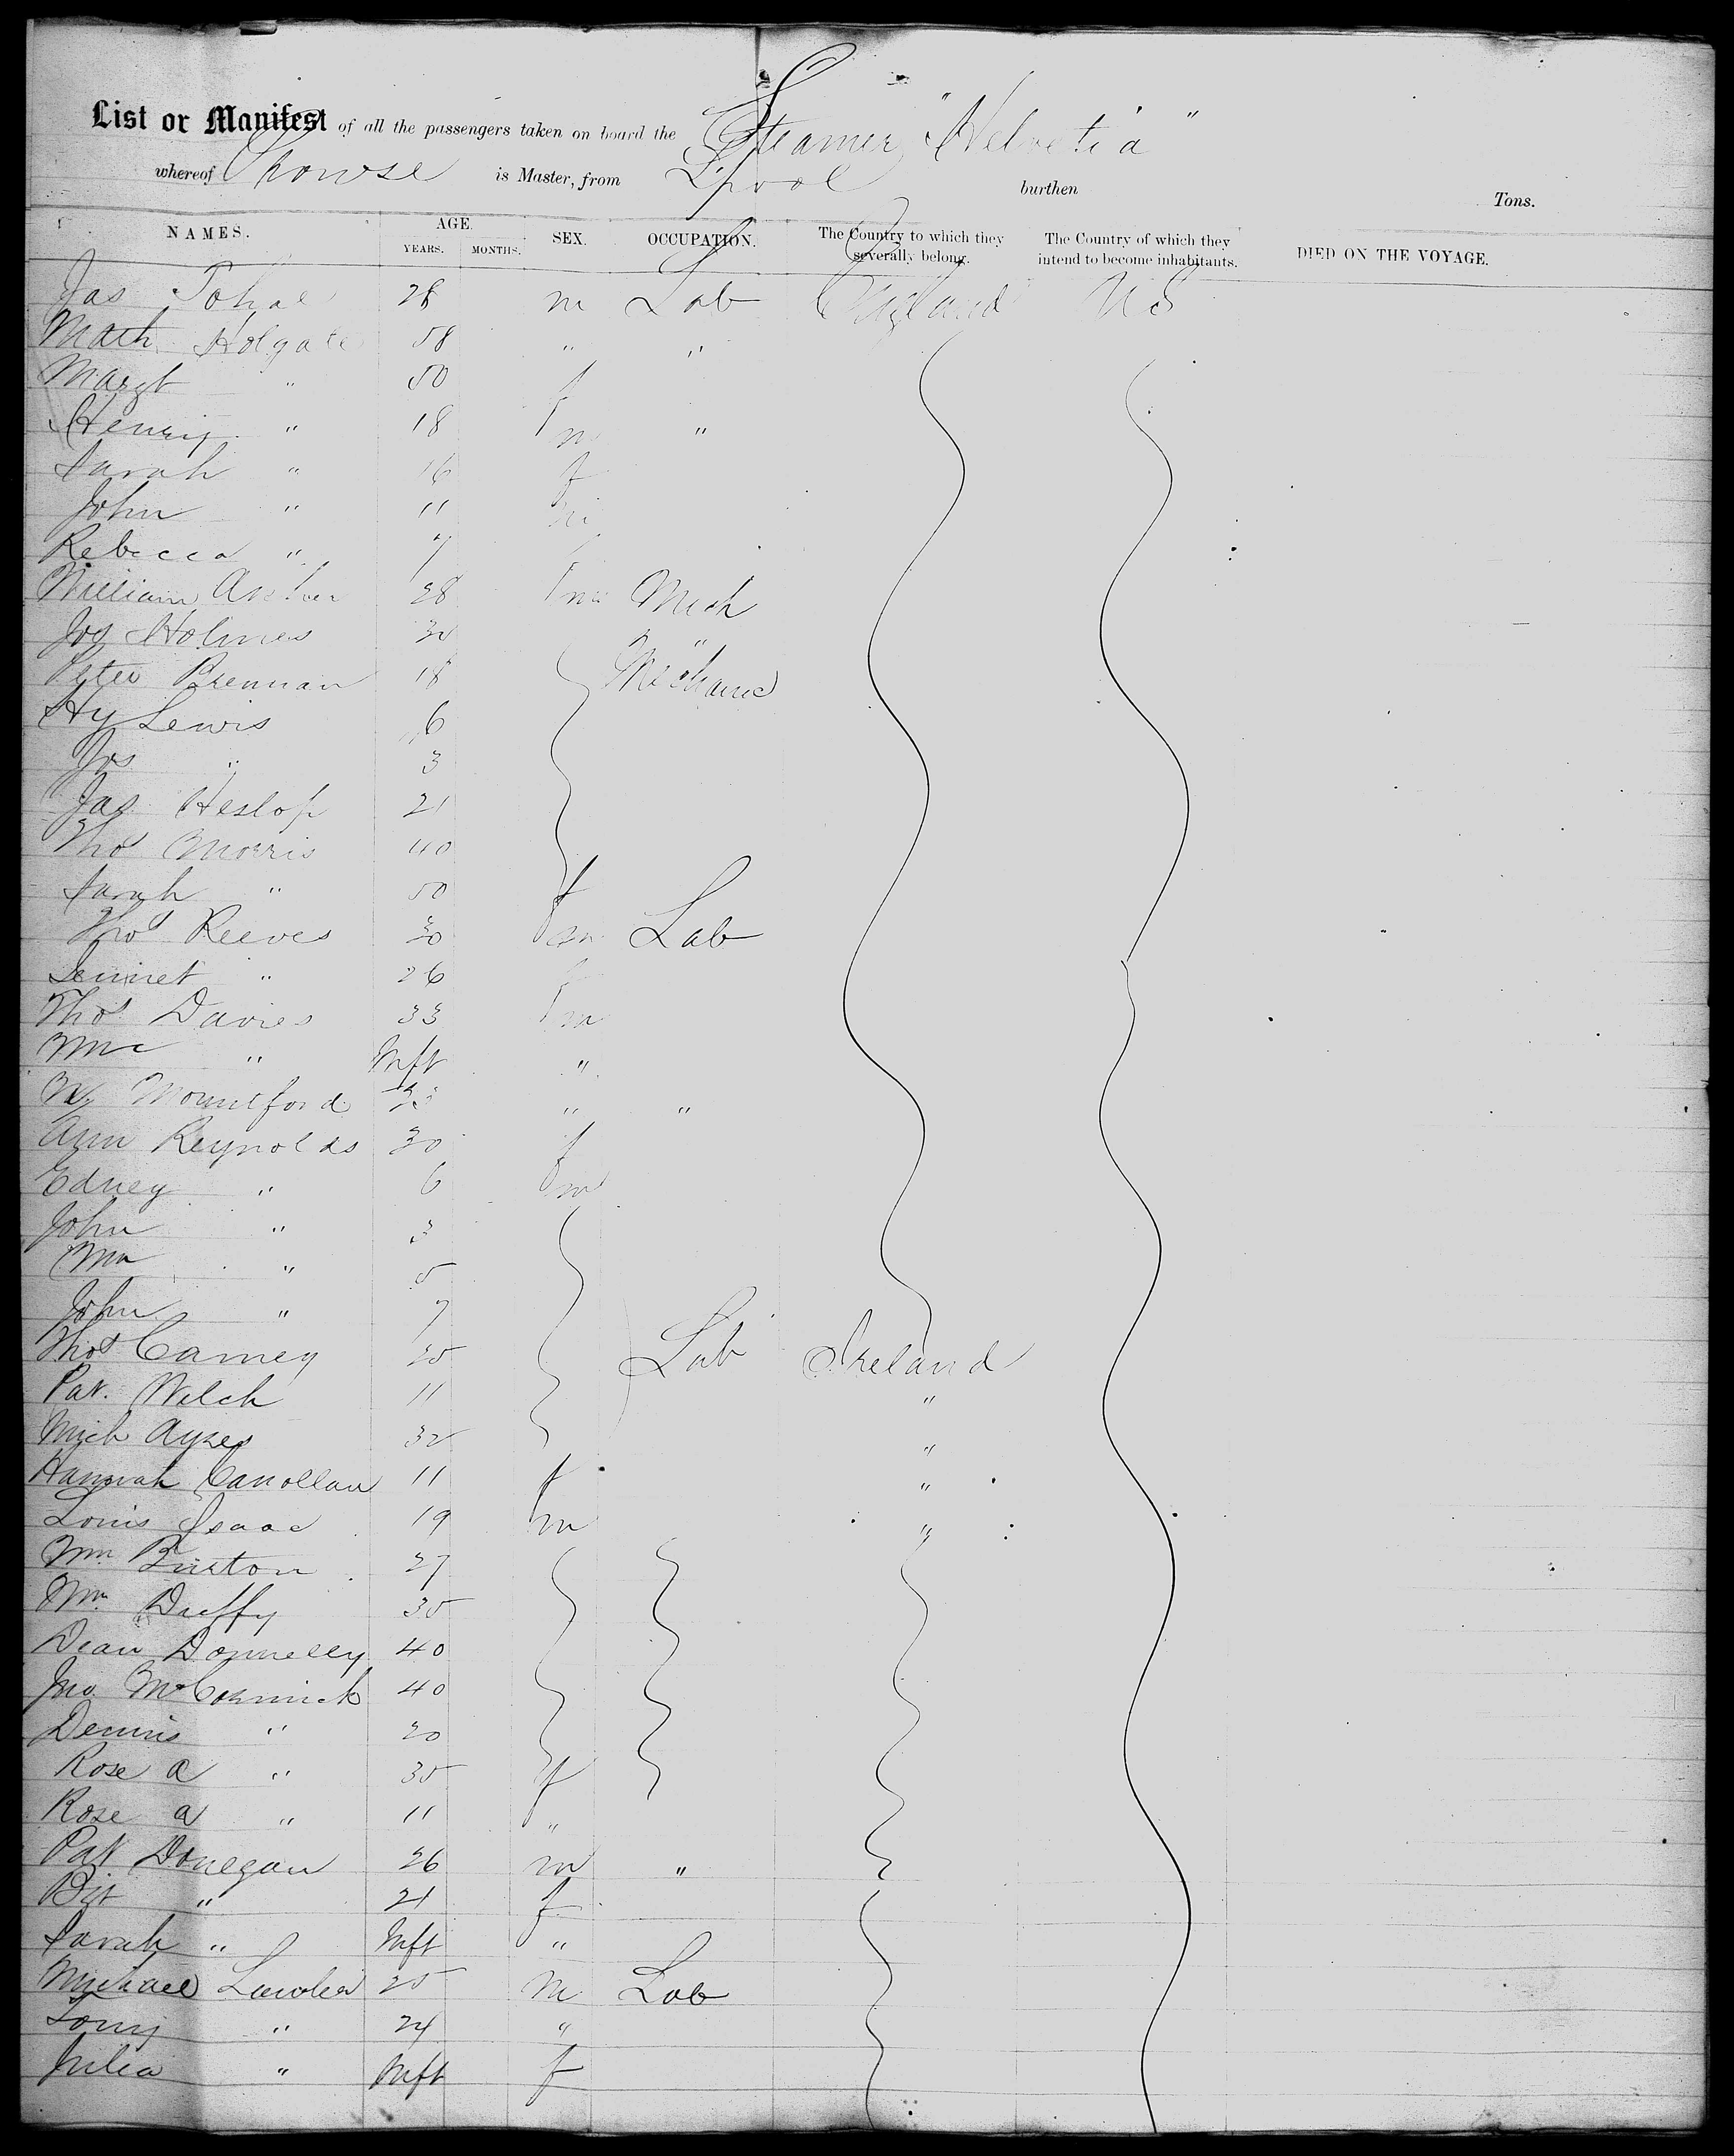 List or Manifest of all the passengers taken on board the Steamer "Helvetia"
whereof is Master, from L'pool burthen Tons.
NAMES. AGE. YEARS. MONTHS. SEX. OCCUPATION. The Country to which they severally belong. The Country of which they intend to become inhabitants. DIED ON THE VOYAGE.
Jas 28 m Lab England US
Math Holgate 58 " "
Margt " 50 f
Henry " 18 m "
Sarah " 16 f
John " 11 m
Rebecca " 7 f
William 28 m Mech
Jos Holmes 30 "
Peter Brennan 18 Mechanic
Hy Lewis 6
Jos " 3
Jas Heslop 21
Thos Morris 40
Sarah " 50 f
Thos Reeves 30 m Lab
" 26 f
Thos Davies 33 m
" Inft "
Mountford " "
Ann Reynolds 30 f
Edney " 6 m
John " 3
Wm " 5
John " 7
Thos Carney Lab Ireland
Pat. Welch 11 "
Mich 32 "
Hannah 11 f "
Louis Isaac 19 m "
Wm Burton 27
Wm Duffy 35
Dean Donnelly 40
Jno. McCormick 40
Dennis " 20
Rose A " 35 f
Rose A " 11 "
Pat Donegan 26 m "
" 21 f
Sarah " Inft "
Michael 25 m Lab
" 24 "
Julia " Inft f